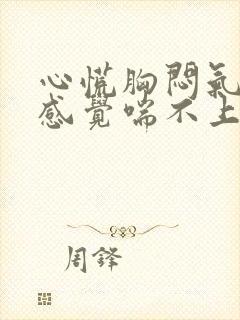 心慌胸悶氣
感覺喘不上
周鋒